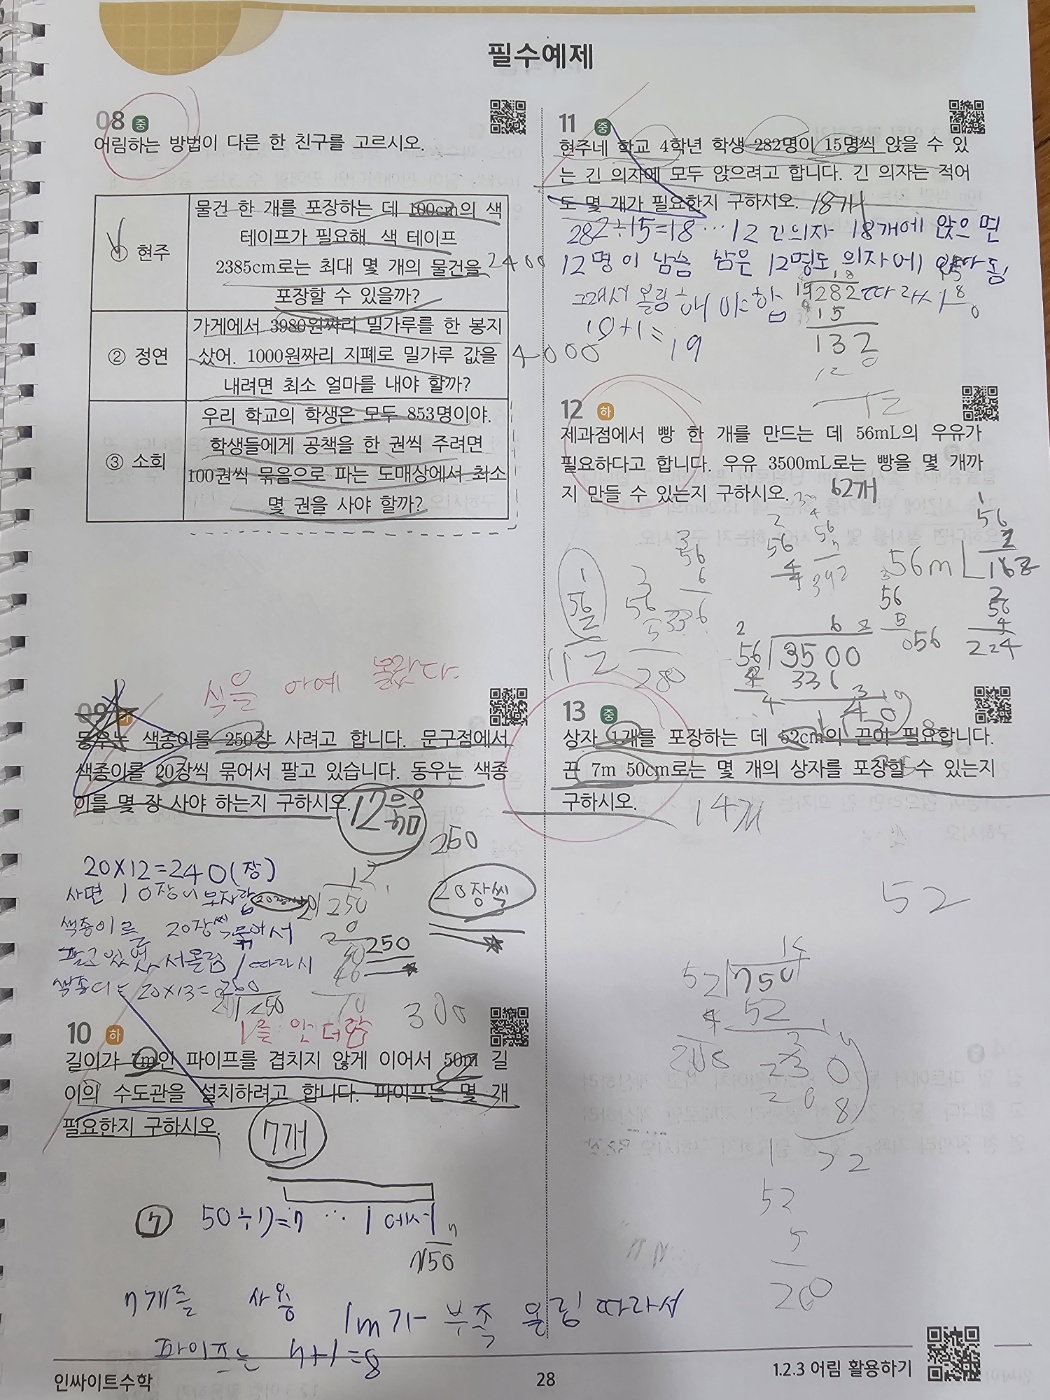 필수예제
08 중
어림하는 방법이 다른 한 친구를 고르시오.
① 현주
물건 한 개를 포장하는 데 100cm의 색
테이프가 필요해. 색 테이프
2385cm로는 최대 몇 개의 물건을
포장할 수 있을까?
2400
② 정연
가게에서 3980원짜리 밀가루를 한 봉지
샀어. 1000원짜리 지폐로 밀가루 값을
내려면 최소 얼마를 내야 할까?
4000
③ 소희
우리 학교의 학생은 모두 853명이야.
학생들에게 공책을 한 권씩 주려면
100권씩 묶음으로 파는 도매상에서 최소
몇 권을 사야 할까?
식을 아예 몰랐다.
09 하
동우는 색종이를 250장 사려고 합니다. 문구점에서
색종이를 20장씩 묶어서 팔고 있습니다. 동우는 색종
이를 몇 장 사야 하는지 구하시오.
12묶음
250
20×12=240(장)
사면 10장이 부족함
색종이를 20장씩 묶어서
팔고 있
서 올림 따라서
색종이는 20×13=260
12
250
20
250
40
10
20장씩
300
1을 안 더함
10 하
길이가 7m인 파이프를 겹치지 않게 이어서 50m 길
이의 수도관을 설치하려고 합니다. 파이프는 몇 개
필요한지 구하시오.
7개
7
50÷7=7 … 1
50
7개를 사용 1m가 부족 올림 따라서
파이프는 7+1=8
11 중
현주네 학교 4학년 학생 282명이 15명씩 앉을 수 있
는 긴 의자에 모두 앉으려고 합니다. 긴 의자는 적어
도 몇 개가 필요한지 구하시오.
18개
282÷15=18…12 긴의자 18개에 앉으면
12명이 남음 남은 12명도 의자에 앉아야 됨
그래서 올림 해야함
따라서
19
18
15 282
15
132
12
12 하
제과점에서 빵 한 개를 만드는 데 56mL의 우유가
필요하다고 합니다. 우유 3500mL로는 빵을 몇 개까
지 만들 수 있는지 구하시오.
62개
56
2
112
56
5
280
56
6
336
56
4
224
56
3
168
62
56 3500
336
140
13 중
상자 1개를 포장하는 데 52cm의 끈이 필요합니다.
끈 7m 50cm로는 몇 개의 상자를 포장할 수 있는지
구하시오.
14개
52
14
52 750
52
4
208
230
208
22
52
5
260
인싸이트수학
28
1.2.3 어림 활용하기